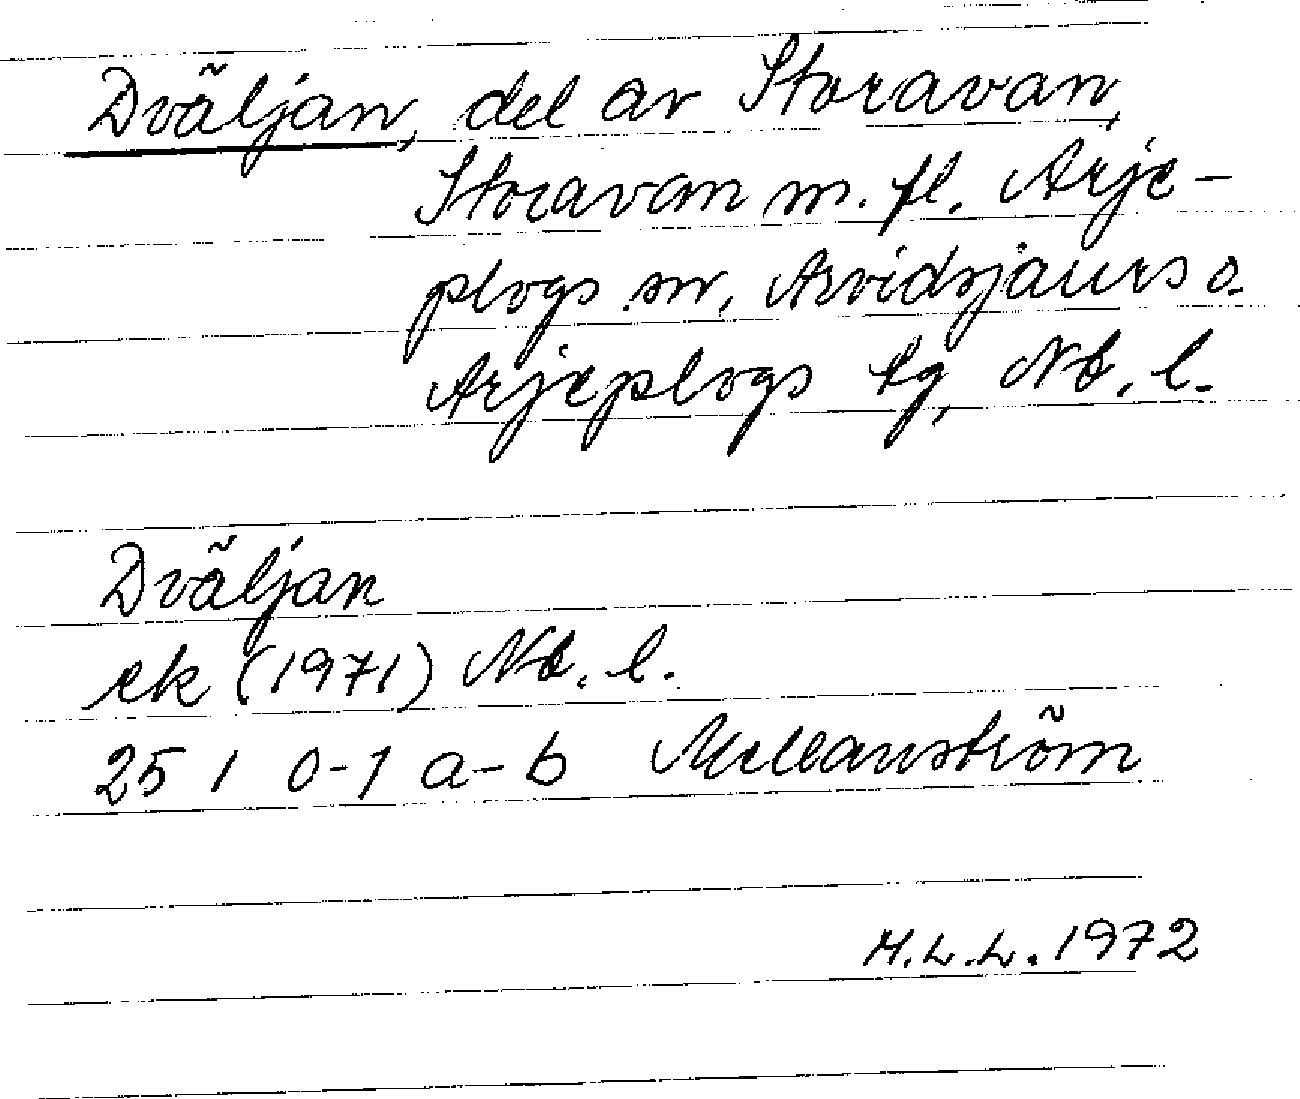 Dväljan, del av Storavan,
Storavan m. fl. Arje-
plogs sn, Arvidsjaurs o.
Arjeplogs tg, Nb. l.
Dväljan
ek (1971) Nb. l.
25 I 0-1 a-b Mellanström
M.L.L. 1972